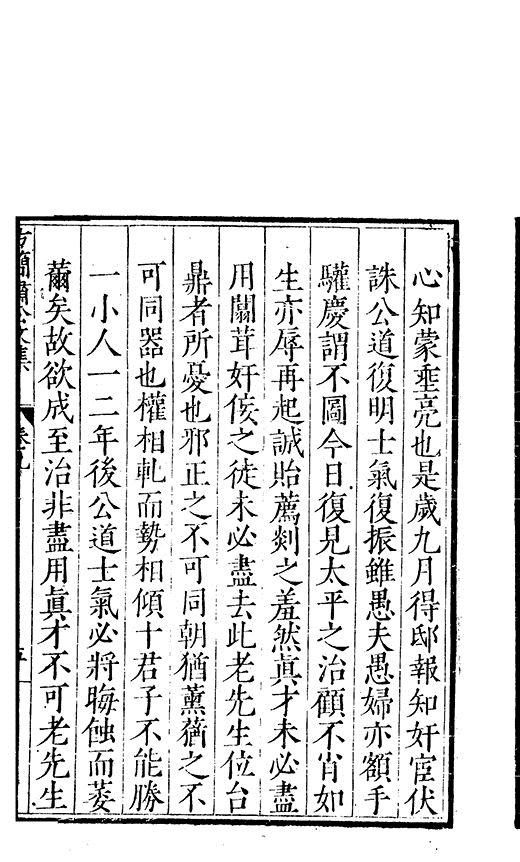 心知蒙垂亮也是歲九月得邸報知奸宦伏
誅公道復明士氣復振雖愚夫愚婦亦額手
驩慶謂不圖今日復見太平之治顧不肖如
生亦辱再起誠貽薦剡之羞然眞才未必盡
用闒茸奸佞之徒未必盡去此老先生位台
鼎者所憂也邪正之不可同朝猶薰蕕之不
可同器也權相軋而勢相傾十君子不能勝
一小人一二年後公道士氣必將晦蝕而萎
薾矣故欲成至治非盡用眞才不可老先生
方簡肅公文集
卷九
五